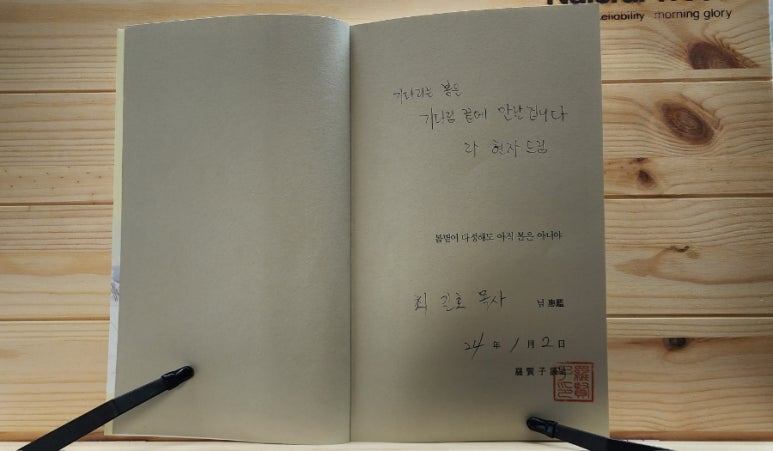 reliability morning glory
기다리는 봄은
기다림 끝에 만난 겁니다
라 현자 드림
봄볕이 다정해도 아직 봄은 아니야
최 길호 목사 님 惠鑑
24 年 1 月 2 日
羅賢子 謹呈